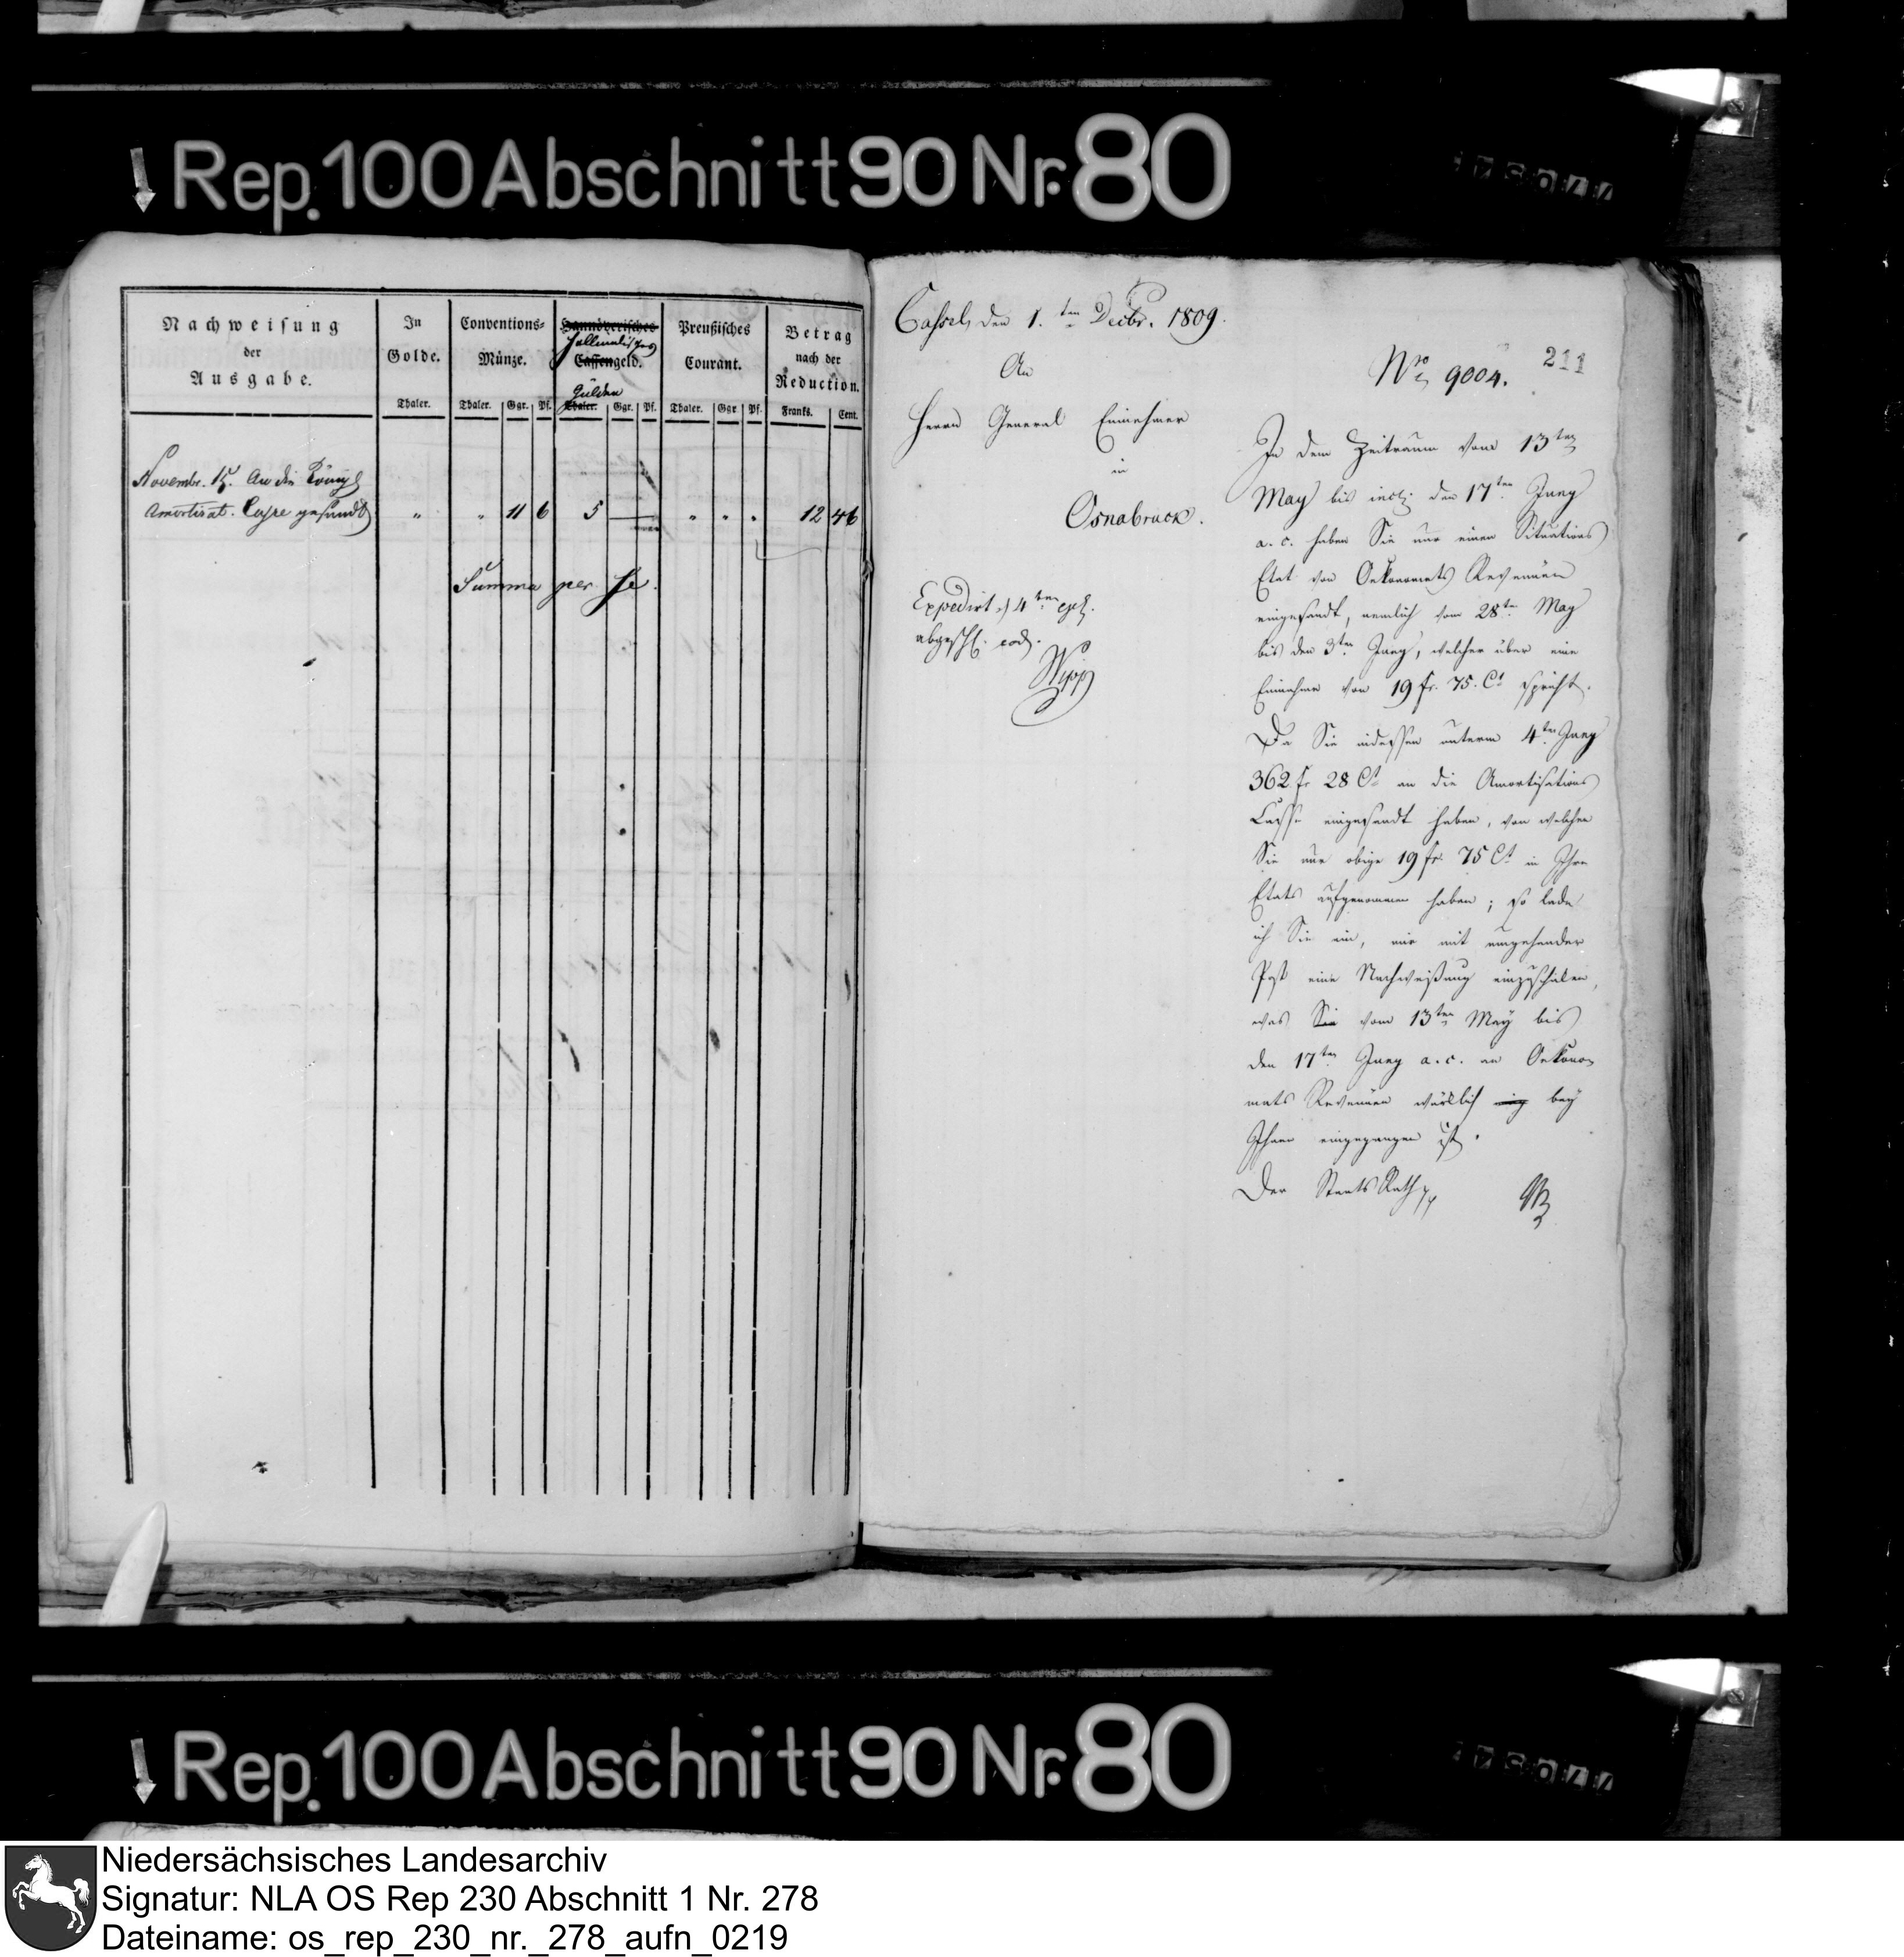 Rep. 100 Abschnitt 90 Nr. 80
Nachweisung
der
Ausgabe.
In
Golde.
Thaler.
Conventions-
Münze.
Thaler. Ggr. Pf.
Hannöverisches
Hollændisches
Cassengeld.
Gülden
Thaler. Ggr. Pf.
Preußisches
Courant.
Thaler. Ggr. Pf.
Betrag
nach der
Reduction.
Franks. Cent.
Novembr. 15. An die Königl
Amortisat. Casse gesandt " " 11 6 5 — " " " 12 46
Summa per se.
Cassel, den 1.ten Decbr. 1809.
An
Herrn General Einnehmer
in
Osnabruck.
Expedirt 4ten ej.
abgesch. eod.
211
No 9004.
In dem Zeitraum vom 13ten
May bis incl. den 17ten Juny
a. c. haben Sie nur einen Situations
Etat von Oekonomats Revenuen
eingesandt, nemlich vom 28ten May
bis den 3ten Juny, welcher über eine
Einnahme von 19 fr. 75. Ct spricht.
Da Sie indessen unterm 4ten Juny
362 fr 28 Ct an die Amortisations
Casse eingesandt haben, von welchen
Sie nur obige 19 fr 75 Ct in Ihre
Etats aufgenommen haben; so lade
ich Sie ein, mir mit umgehender
Post eine Nachweisung einzuschicken,
was Sie vom 13ten May bis
den 17ten Juny a. c. an Oekono-
mats Revenuen würklich bey
Ihnen eingegangen ist.
Der Staats Rath
Rep. 100 Abschnitt 90 Nr. 80
Niedersächsisches Landesarchiv
Signatur: NLA OS Rep 230 Abschnitt 1 Nr. 278
Dateiname: os_rep_230_nr._278_aufn_0219